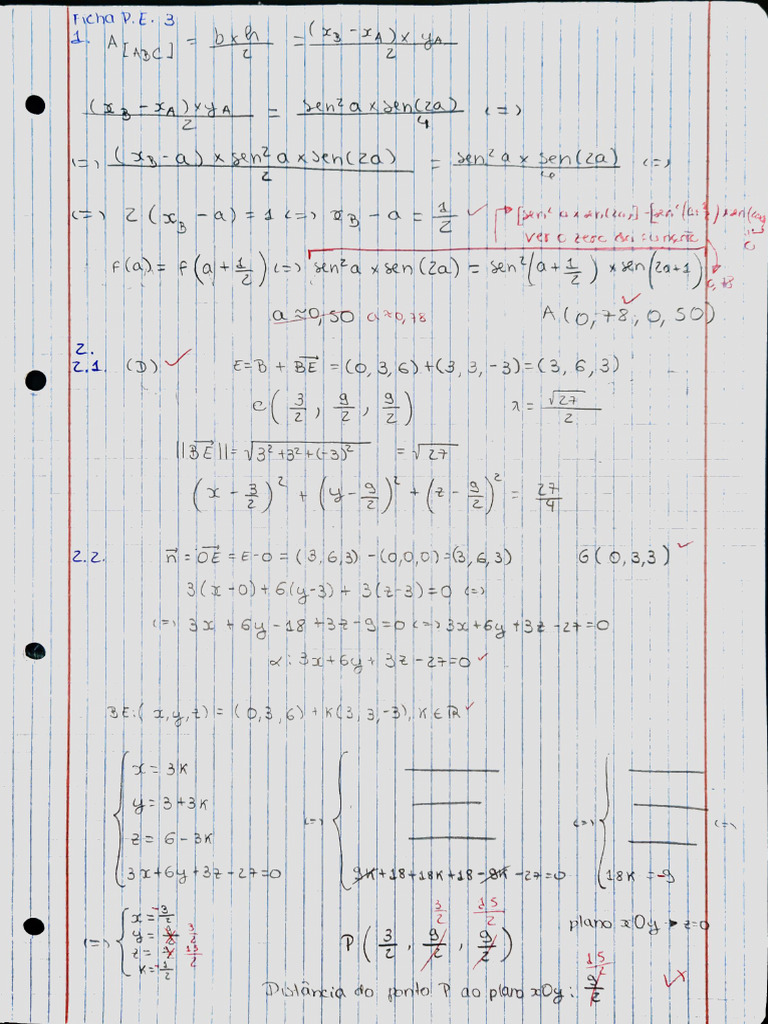 Ficha P.E. 3
1. A[ABC] = b×h/2 = (x_B - x_A) × y_A / 2
(x_B - x_A) × y_A / 2 = sen²a × sen(2a) / 4 (=)
(=) (x_B - a) × sen²a × sen(2a) / 2 = sen²a × sen(2a) / 4 (=)
(=) 2(x_B - a) = 1 (=) x_B - a = 1/2 ✓
f(a) = f(a + 1/2) (=) sen²a × sen(2a) = sen²(a + 1/2) × sen(2a+1) 0,78
a ≈ 0,50 a ≈ 0,78 A(0,78, 0,50) ✓
2.
2.1. (D) ✓ E = B + BE⃗ = (0, 3, 6) + (3, 3, -3) = (3, 6, 3)
C(3/2, 9/2, 9/2) r = √27/2
||BE⃗|| = √(3² + 3² + (-3)²) = √27
(x - 3/2)² + (y - 9/2)² + (z - 9/2)² = 27/4
2.2. n⃗ = OE⃗ = E - O = (3, 6, 3) - (0, 0, 0) = (3, 6, 3) G(0, 3, 3) ✓
3(x-0) + 6(y-3) + 3(z-3) = 0 (=)
(=) 3x + 6y - 18 + 3z - 9 = 0 (=) 3x + 6y + 3z - 27 = 0
α: 3x + 6y + 3z - 27 = 0 ✓
BE: (x, y, z) = (0, 3, 6) + K(3, 3, -3), K ∈ ℝ ✓
x = 3K
y = 3 + 3K (=)
z = 6 - 3K (=) (=)
3x + 6y + 3z - 27 = 0 9K + 18 + 18K + 18 - 9K - 27 = 0 18K = -9
3/2 15/2 plano xOy → z = 0
(=) x = -3/2
y = 3/2 P(3/2, 9/2, 9/2)
z =
K = -1/2 15/2
Distância do ponto P ao plano xOy: 9/2